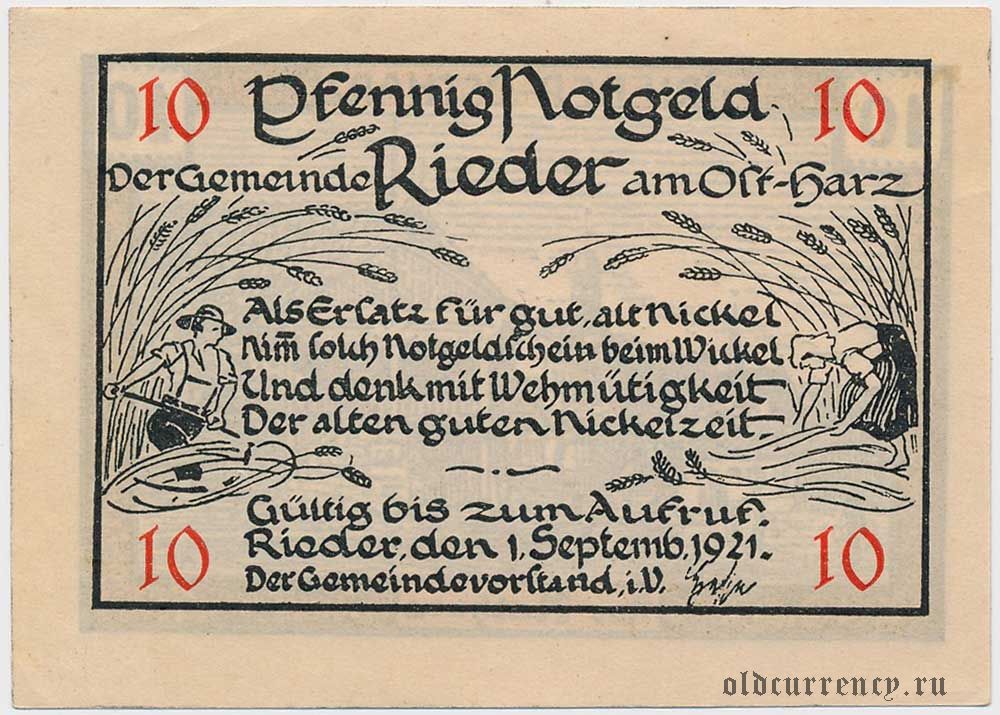 10 Pfennig Notgeld 10
Der Gemeinde Rieder am Ost-Harz
Als Ersatz für gut, alt Nickel
Nim̅ solch Notgeldschein beim Wickel
Und denk mit Wehmütigkeit
Der alten guten Nickelzeit.
Gültig bis zum Aufruf.
10 Rieder, den 1. Septemb. 1921. 10
Der Gemeindevorstand, i.V.
oldcurrency.ru